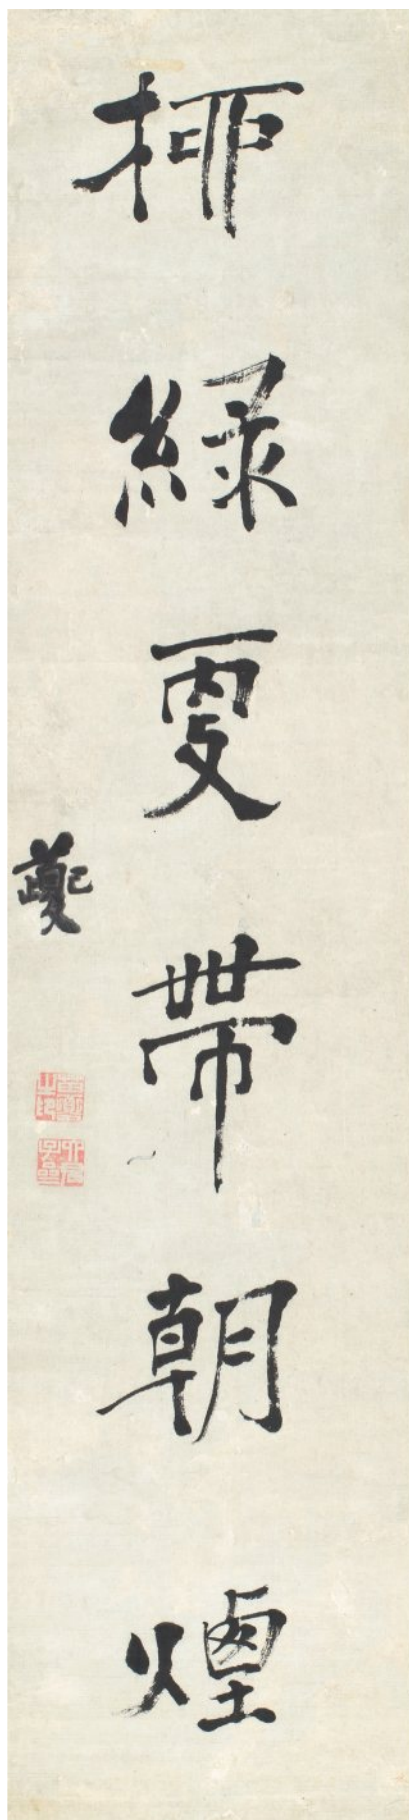 柳綠更帶朝煙
夔